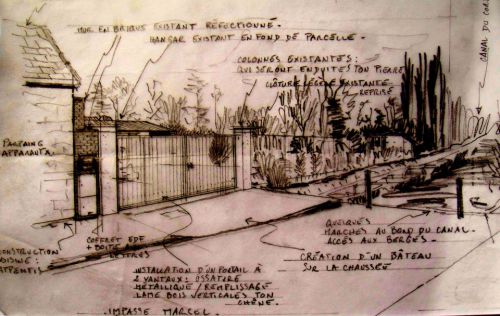 MUR EN BRIQUE EXISTANT RÉFECTIONNÉ.
HANGAR EXISTANT EN FOND DE PARCELLE.
COLONNES EXISTANTES:
QUI SERONT ENDUITES TON PIERRE
CLÔTURE LÉGÈRE EXISTANTE
REPRISE
CANAL DU
PARPAING
APPARENTS.
CONSTRUCTION
VOISINE:
APPENTIS
COFFRET EDF
+ BOITE
LETTRES
INSTALLATION D'UN PORTAIL À
2 VANTAUX: OSSATURE
MÉTALLIQUE / REMPLISSAGE
LAME BOIS VERTICALES TON
CHÊNE.
IMPASSE MARCEL.
QUELQUES
MARCHES AU BORD DU CANAL.
ACCÈS AUX BERGES.
CRÉATION D'UN BÂTEAU
SUR LA CHAUSSÉE